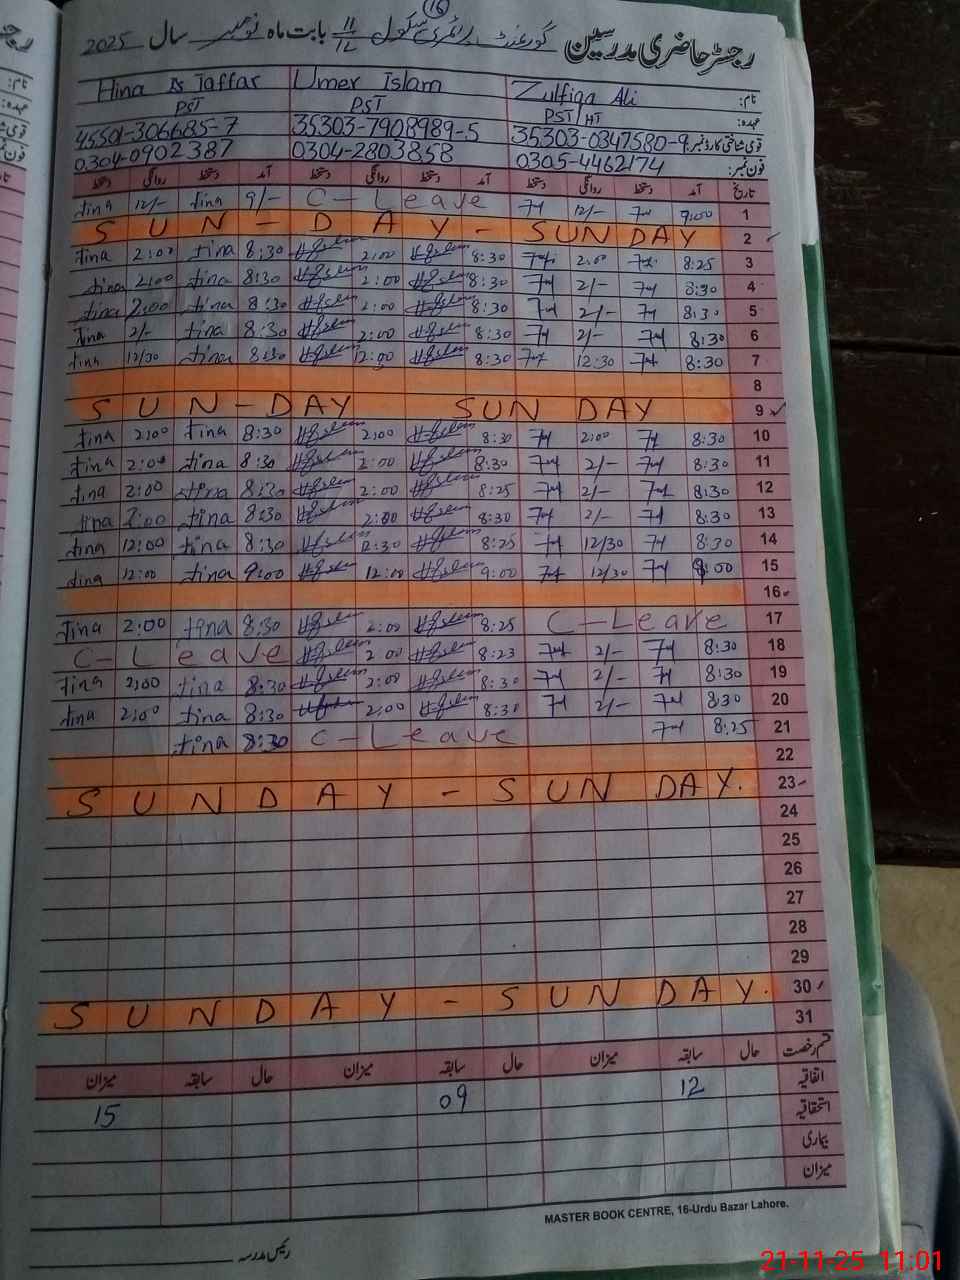 16
رجسٹر حاضری مدرسین گورنمنٹ پرائمری سکول 11/12 بابت ماہ نومبر سال 2025
نام: Zulfiqa Ali Umer Islam Hina Is Jaffar
عہدہ: PST/HT PST PST
قومی شناختی کارڈ نمبر: 35303-0347580-9 35303-7908989-5 45501-306685-7
فون نمبر: 0305-4462174 0304-2803858 0304-0902387
تاریخ آمد دستخط روانگی دستخط آمد دستخط روانگی دستخط آمد دستخط روانگی دستخط
1 9:00 12/- C-Leave 9/- tina 12/- tina
2 SUN-DAY-SUNDAY
3 8:25 2:00 8:30 2:00 8:30 tina 2:00 tina
4 8:30 2/- 8:30 2:00 8:30 tina 2:00 tina
5 8:30 2/- 8:30 2:00 8:30 tina 2:00 tina
6 8:30 2/- 8:30 2:00 8:30 tina 2/- tina
7 8:30 12:30 8:30 12:00 8:30 tina 12/30 tina
8
9 SUN-DAY SUN DAY
10 8:30 2:00 8:30 2:00 8:30 tina 2:00 tina
11 8:30 2/- 8:30 2:00 8:30 tina 2:00 tina
12 8:30 2/- 8:25 2:00 8:30 tina 2:00 tina
13 8:30 2/- 8:30 2:00 8:30 tina 2:00 tina
14 8:30 12/30 8:25 12:30 8:30 tina 12:00 tina
15 9:00 12/30 9:00 12:00 9:00 tina 12:00 tina
16
17 C-Leave 8:25 2:00 8:30 tina 2:00 tina
18 8:30 2/- 8:23 2:00 C-Leave
19 8:30 2/- 8:30 2:00 8:30 tina 2:00 tina
20 8:30 2/- 8:30 2:00 8:30 tina 2:00 tina
21 8:25 C-Leave 8:30 tina
22
23 SUNDAY-SUNDAY.
24
25
26
27
28
29
30 SUNDAY-SUNDAY.
31
قسم رخصت حال سابقہ میزان حال سابقہ میزان حال سابقہ میزان
اتفاقیہ 12 09 15
استحقاقیہ
بیماری
میزان
MASTER BOOK CENTRE, 16-Urdu Bazar Lahore.
رئیس مدرسہ
21-11-25 11:01